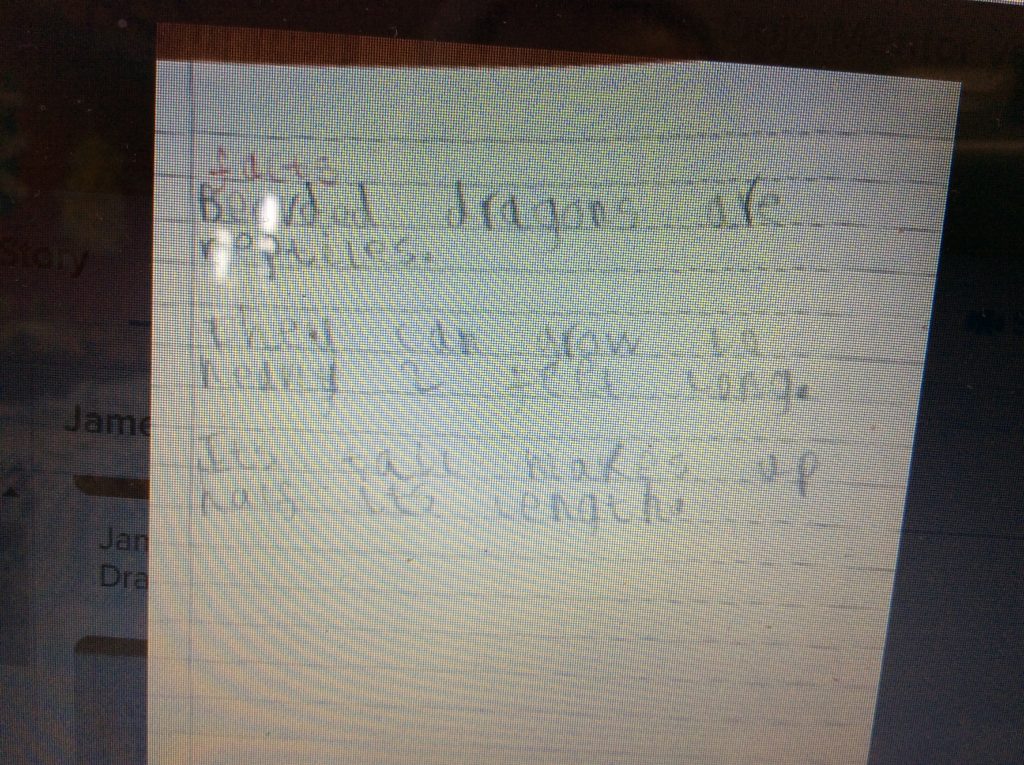 Story
facts
Bearded dragons are
reptiles.
They can grow to
neary 2 feet long.
Its tail makes up
half its length.
Jame
Jam
Dra